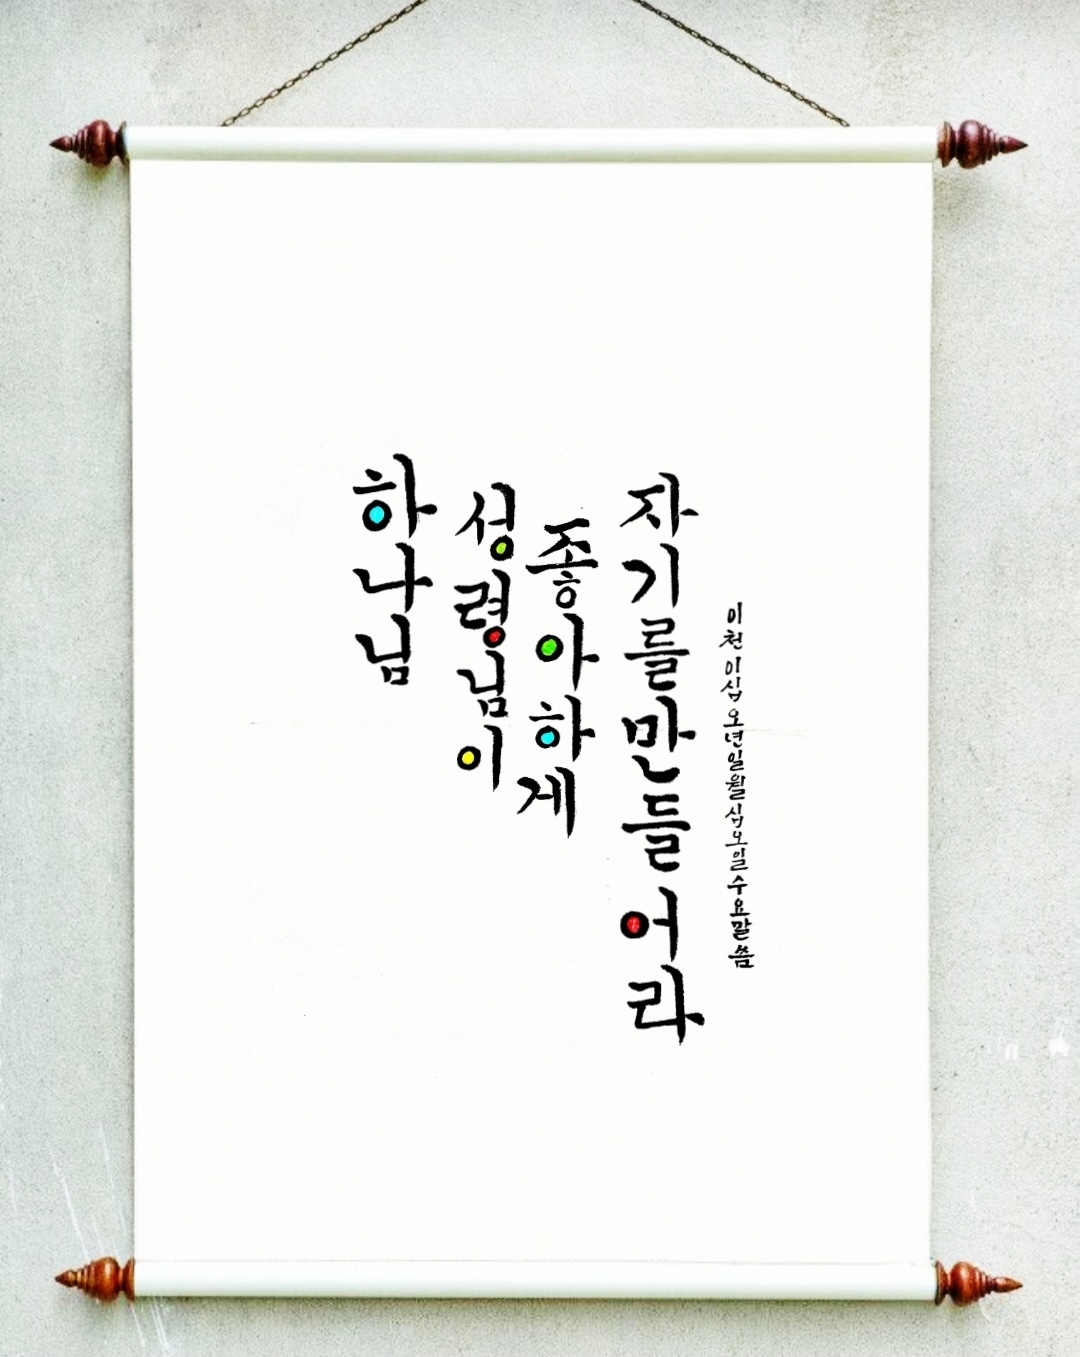 하나님
성령님이
좋아하게
자기를만들어라
이천이십오년일월십오일수요말씀